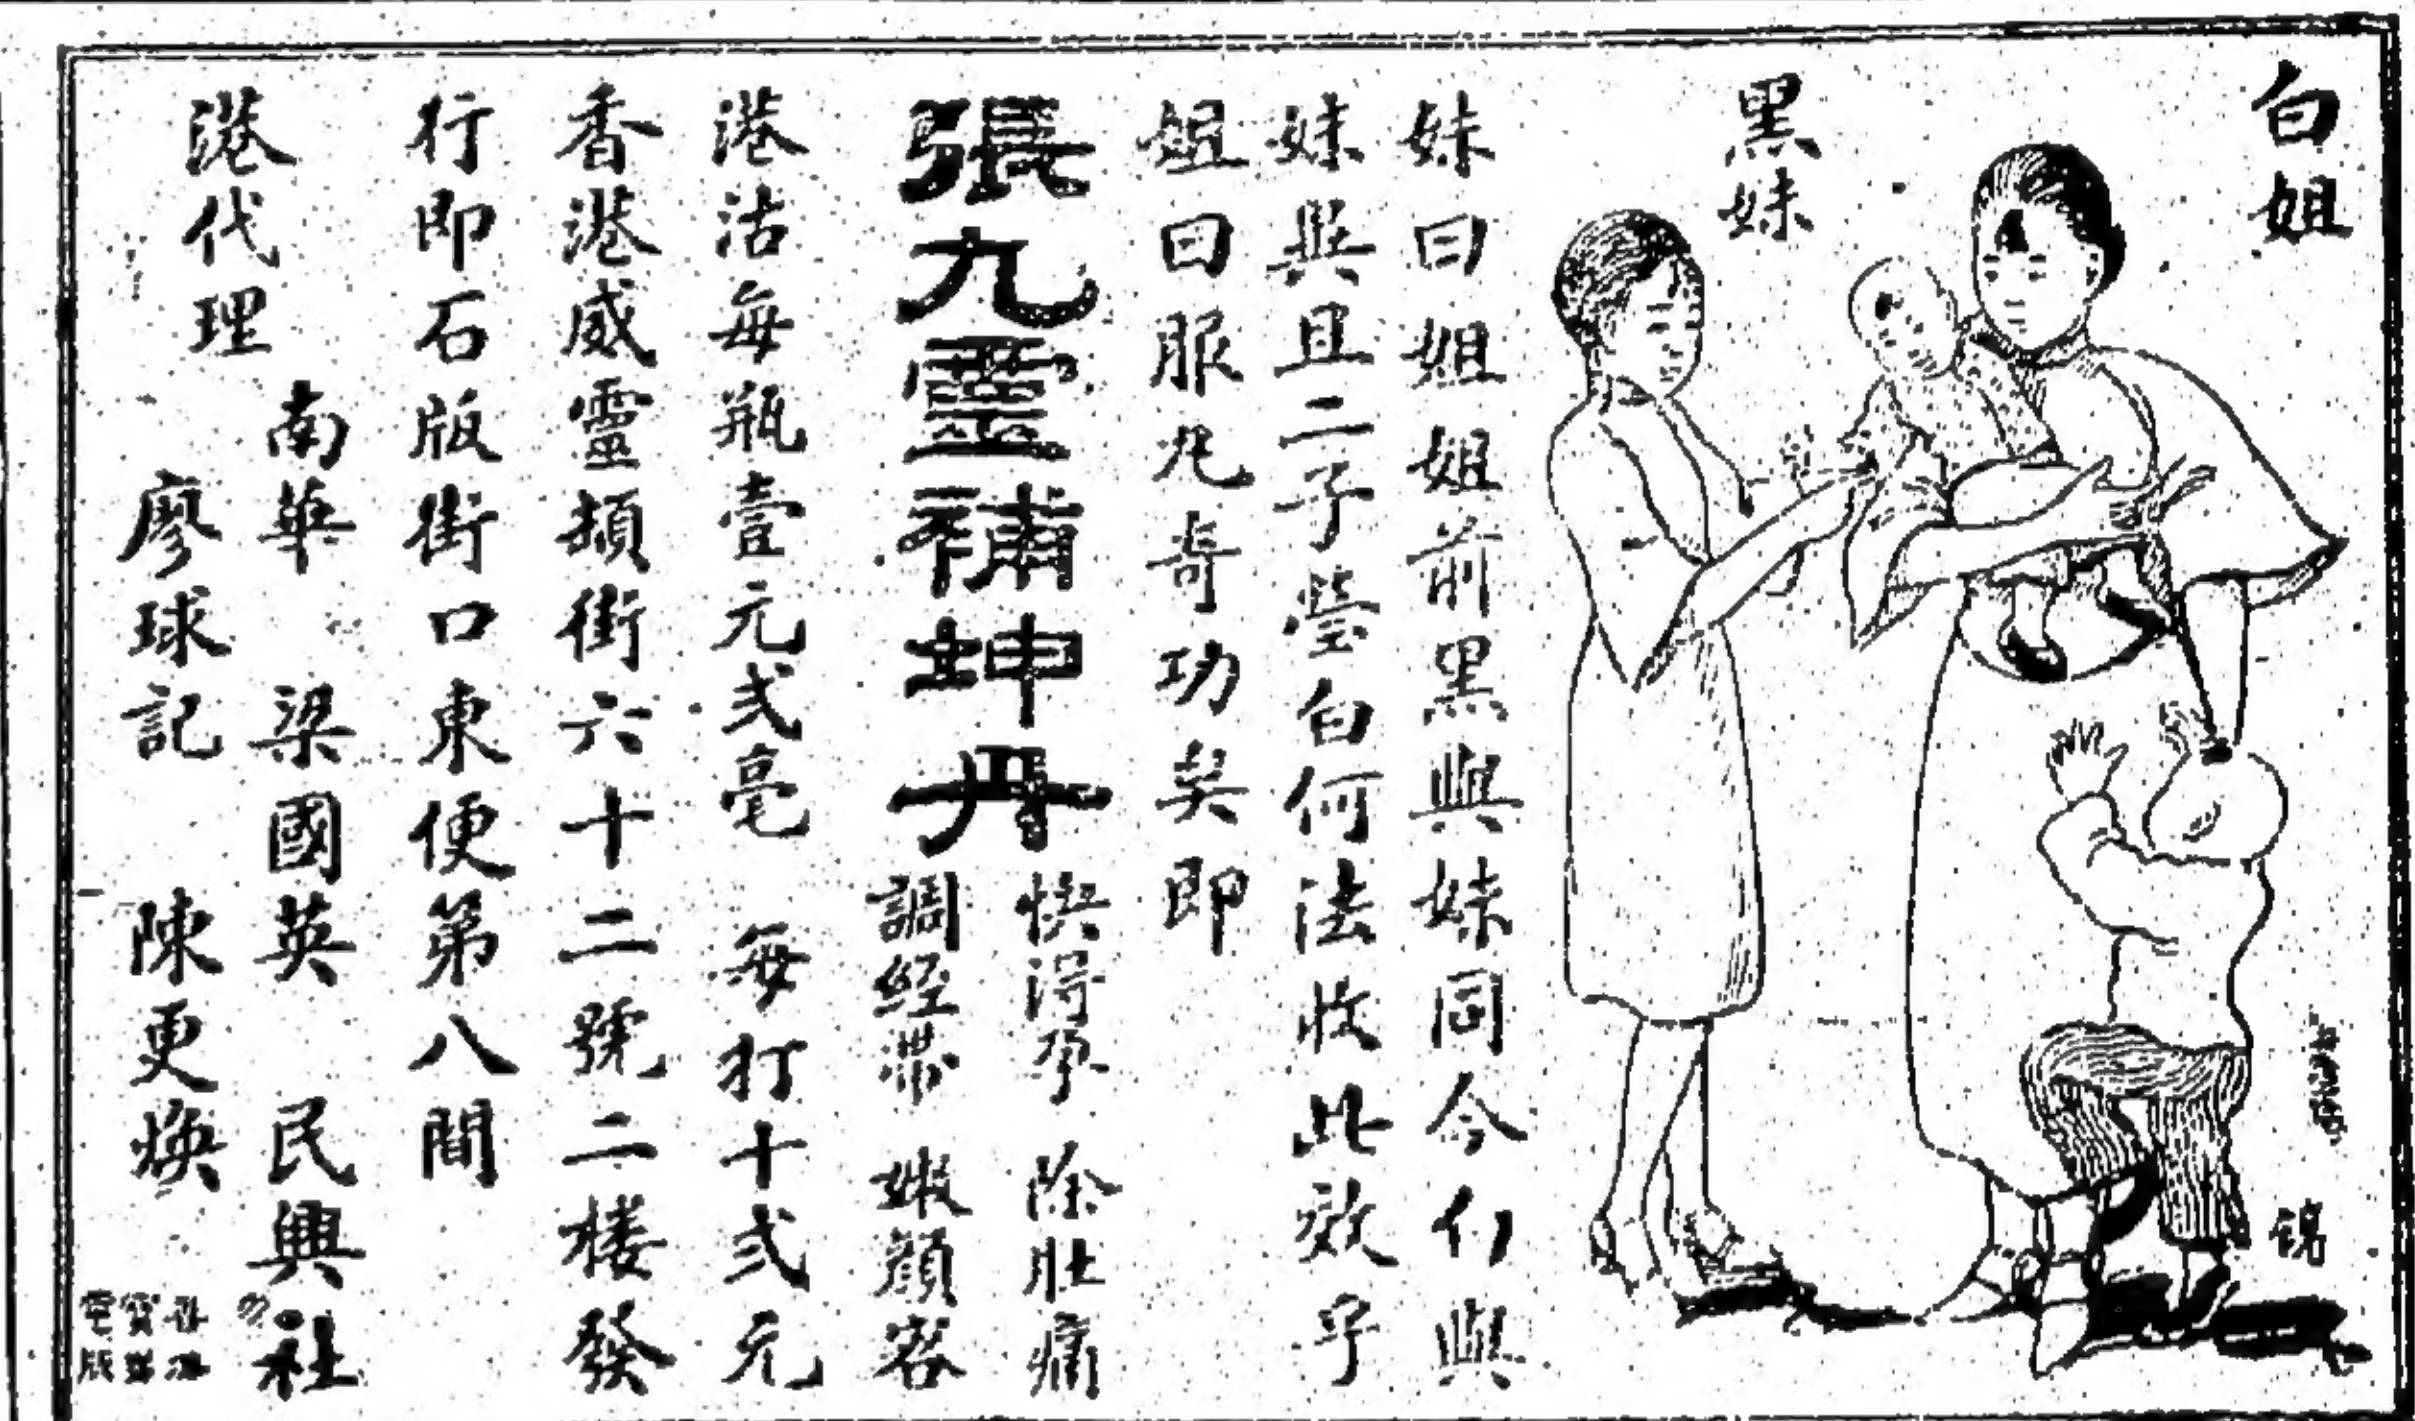 白姐
黑妹
妹曰姐姐前黑與妹同今们與
妹與且二子瑩白何法收此效乎
姐曰服九奇功矣即
張九靈補坤丹
快得孕 除肚痛
調經帶 嫩顏容
港沽每瓶壹元弍毫 每打十弍元
香港威靈頓街六十二號二楼發
行即石版街口東便第八間
港代理
南華 梁國英 民興社
廖球記 陳更煥